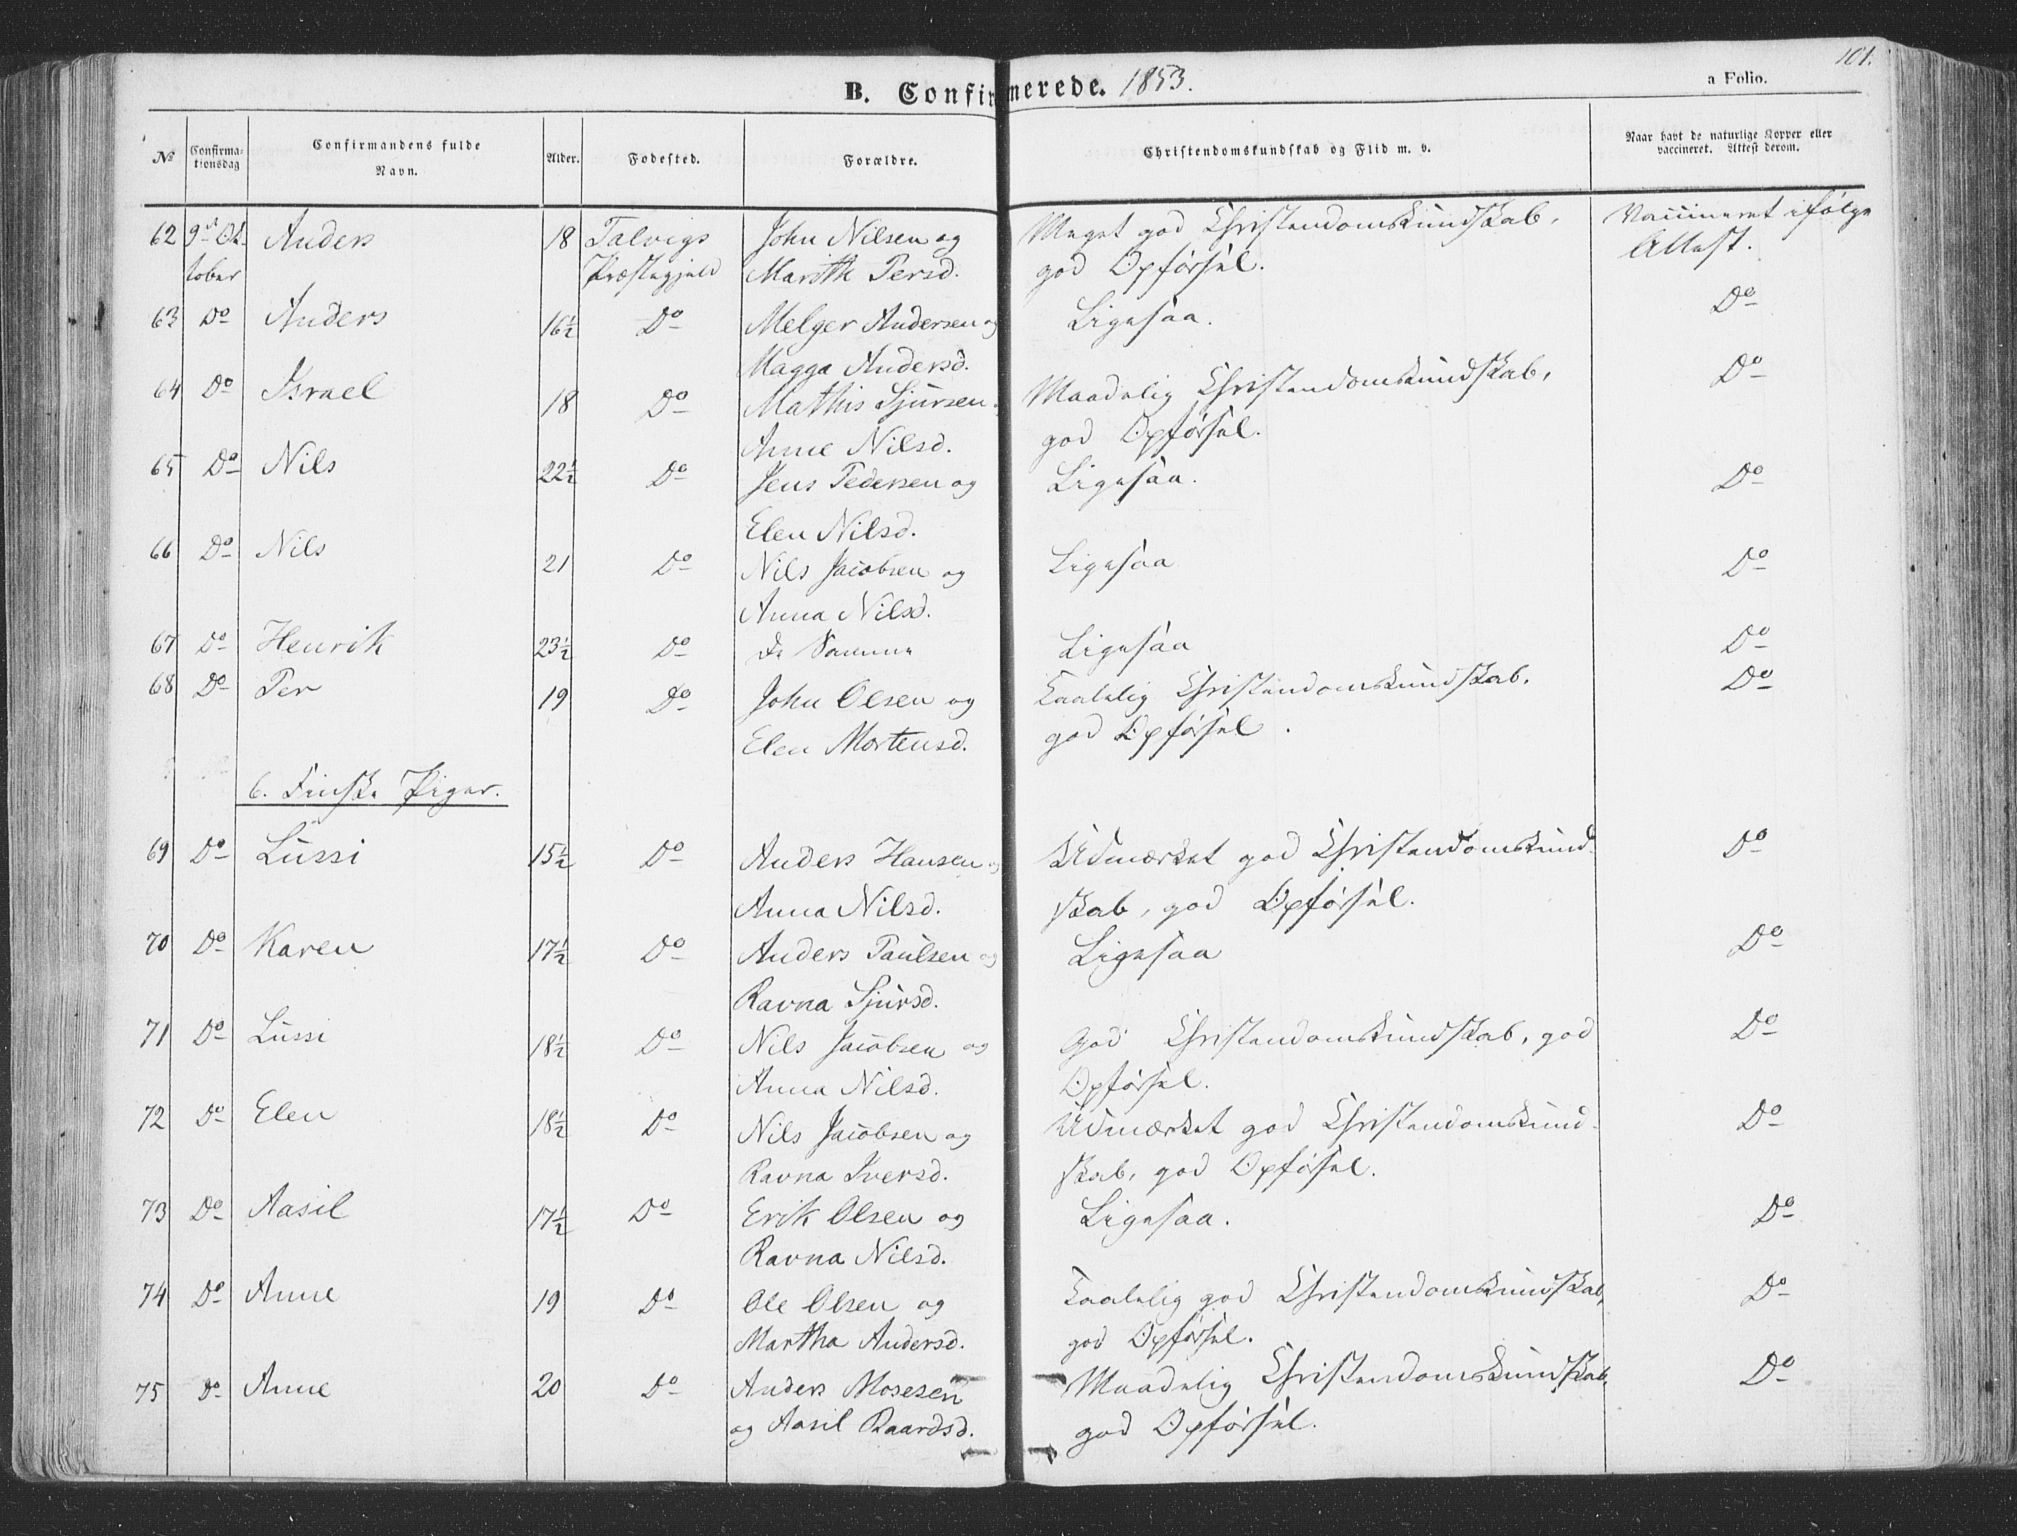 101.
B. Confirmerede. 1853.
a Folio.
№ Confirma-tionsdag Confirmandens fulde Navn. Alder. Fødested. Forældre. Christendomskundskab og Flid m. v. Naar havt de naturlige Kopper eller vaccineret. Attest derom.
62 9de Ok- Anders 18 Talvigs John Nilsen og Meget god Christendomskundskab, Vaccineret ifølge
tober Præstegjeld Marith Persd. god Opførsel. Attest.
63 Do Anders 16½ Do Melger Andersen og Ligesaa. Do
Magga Andersd.
64 Do Israel 18 Do Mathis Sjursen Maadelig Christendomskundskab, Do
Anne Nilsd. god Opførsel.
65 Do Nils 22½ Do Jens Pedersen og Ligesaa. Do
Elen Nilsd.
66 Do Nils 21 Do Nils Jacobsen og Ligesaa Do
Anna Nilsd.
67 Do Henrik 23½ Do De Samme Ligesaa Do
68 Do Per 19 Do John Olsen og Taalelig Christendomskundskab, Do
Elen Mortensd. god Opførsel.
6. Finske Piger.
69 Do Lussi 15½ Do Anders Hansen og Udmærket god Christendomskund- Do
Anna Nilsd. skab, god Opførsel.
70 Do Karen 17½ Do Anders Paulsen og Ligesaa Do
Ravna Sjursd.
71 Do Lussi 18½ Do Nils Jacobsen og God Christendomskundskab, god Do
Anna Nilsd. Opførsel.
72 Do Elen 18½ Do Nils Jacobsen og Udmærket god Christendomskund- Do
Ravna Iversd. skab, god Opførsel.
73 Do Aasil 17½ Do Erik Olsen og Ligesaa. Do
Ravna Nilsd.
74 Do Anne 19 Do Ole Olsen og Taalelig god Christendomskundskab, Do
Martha Andersd. god Opførsel.
75 Do Anne 20 Do Anders Mosesen Maadelig Christendomskundskab, Do
og Aasil Baardsd. god Opførsel.